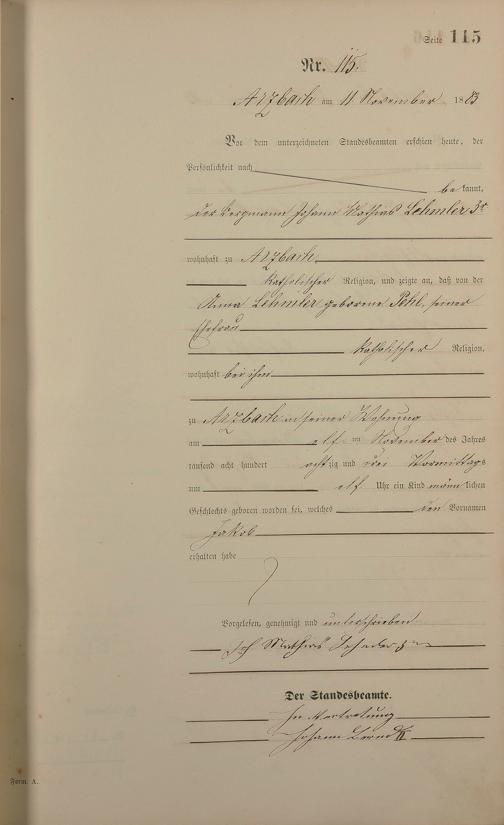 Seite 115
Nr. 115.
Arzbach am 11 November 1883
Vor dem unterzeichneten Standesbeamten erschien heute, der
Persönlichkeit nach
bekannt,
der Bergmann Johann Mathias Lehmler 3r
wohnhaft zu Arzbach
katholischer Religion, und zeigte an, daß von der
Anna Lehmler geborene Pehl, seiner
Ehefrau
katholischer Religion,
wohnhaft bei ihm
zu Arzbach in seiner Wohnung
am elf ten November des Jahres
tausend acht hundert achtzig und drei Vormittags
um elf Uhr ein Kind männlichen
Geschlechts geboren worden sei, welches den Vornamen
Jakob
erhalten habe
Vorgelesen, genehmigt und unterschrieben
Joh Mathias
Der Standesbeamte.
In Vertretung
Johann
Form. A.